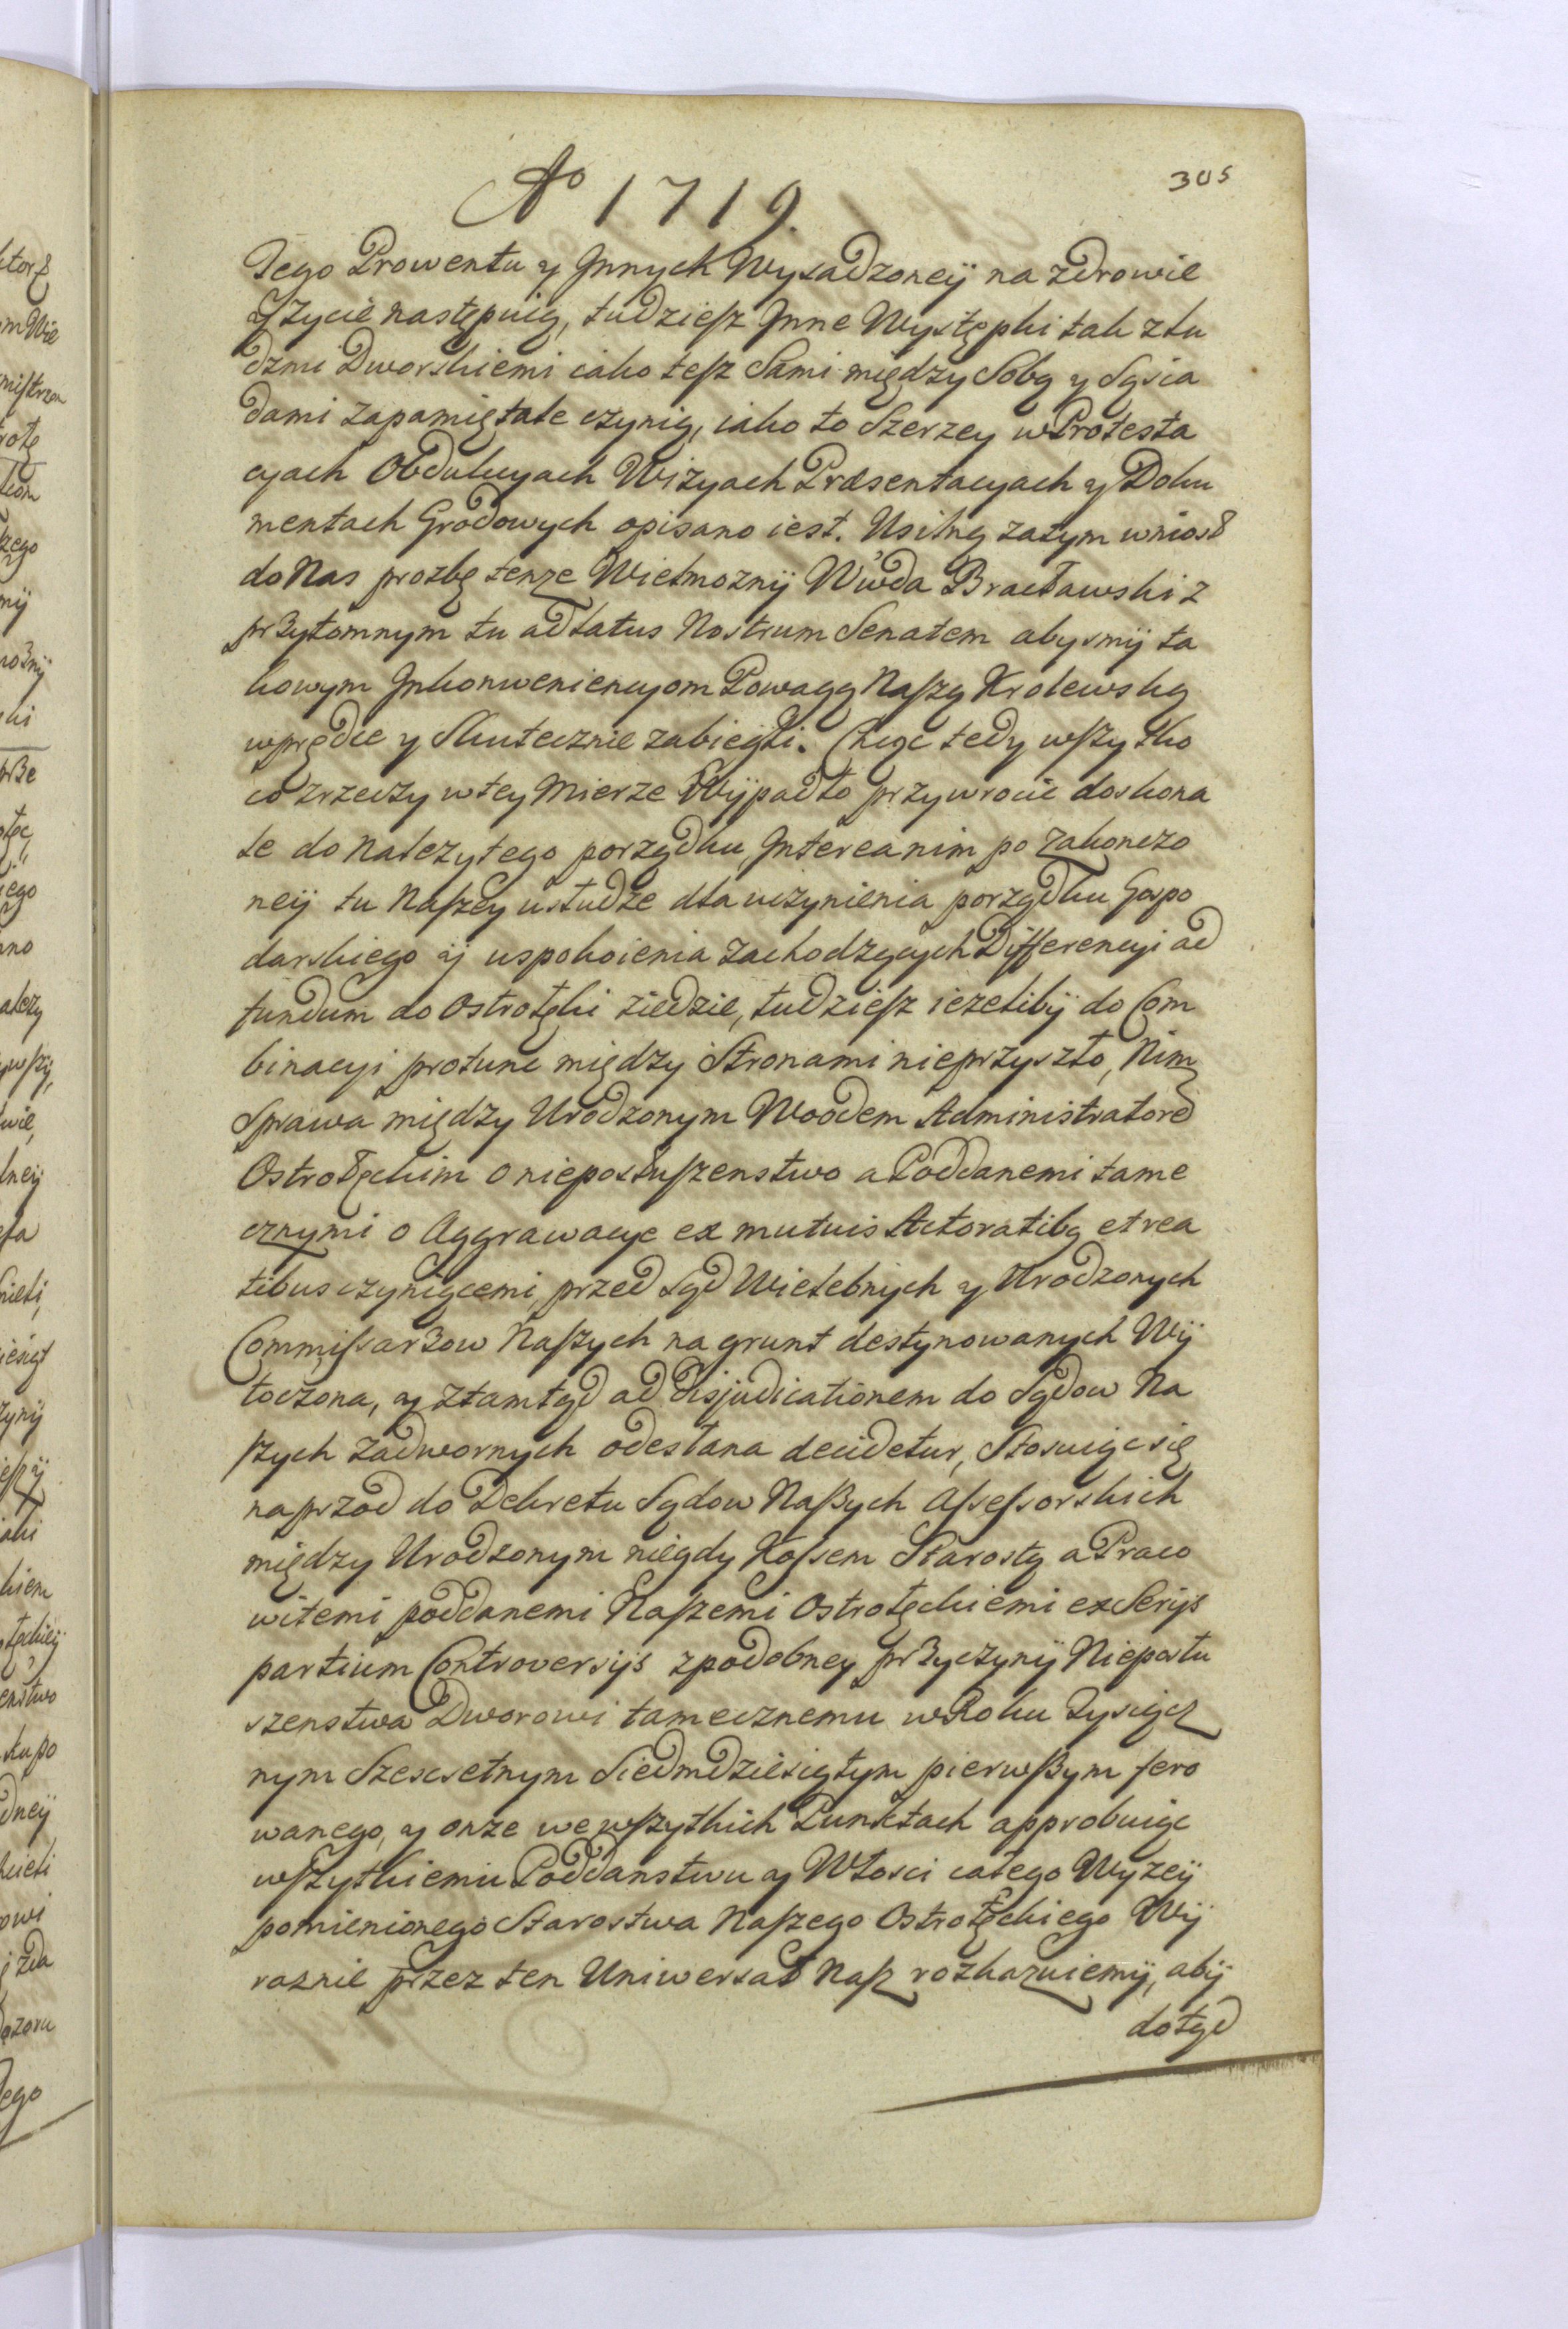 305
Ao 1719.
Jego Prowentu y Jnnych Wysadzoneÿ na zdrowie
y życie następuią, tudziesz Jnne Występki tak z lu
dzmi Dworskiemi iako tesz Sami między Sobą y Sąsia
dami zapamiętale czynią, iako to Szerzey w Protesta
cyach Obdukcyach Wizyach Præsentacyach y Doku
mentach Grodowych opisano iest. Usilną zatym wniosł
do Nas prozbę tenze Wielmoznÿ Wwda Bracławski z
przytomnym tu ad latus Nostrum Senatem abysmÿ ta
kowym Jnkonweniencyom Powagą Naszą Krolewską
wprędce y Skutecznie zabiegli. Chcąc tedy wszytko
co zrzeczy w tey Mierze Wÿpadło przywrocic doskona
le do Nalezytego porządku, Jnterea nim po zakonczo
neÿ tu Naszey usłudze dla uczynienia porządku Gospo
darskiego ÿ uspokoienia zachodzących Differencyi ad
fundum do Ostrołęki ziedzie, tudziesz iezelibÿ do Com
binacyi protunc między Stronami nieprzyszło, Nim
Sprawa między Urodzonym Woodem Administratore
Ostrołęckim o nieposłuszenstwo a Poddanemi tame
cznymi o Aggrawacye ex mutuis Actoratibq et rea
tibus czyniącemi, przed Sąd Wielebnych y Urodzonych
Commissarzow Naszych na grunt destynowanych Wÿ
toczona, y ztamtąd ad disjudicationem do Sądow Na
szych Zadwornych odesłana decidetur, Stosuiąc się
naprzod do Dekretu Sądow Naszych Assessorskich
między Urodzonym niegdy Kossem Starostą a Praco
witemi poddanemi Naszemi Ostrołęckiemi ex Serÿs
partium Controversÿs z podobney przyczynÿ Nieposłu
szenstwa Dworowi tamecznemu w Roku Tysiącz
nym Szescsetnym Siedmdziesiątym pierwszym fero
wanego, y onze we wszytkich Punktach approbuiąc
wszytkiemu Poddanstwu y Włosci całego Wyzeÿ
pomienionego Starostwa Naszego Ostrołęckiego Wÿ
raznie przez ten Uniwersał Nasz rozkazuiemÿ, abÿ
dotąd